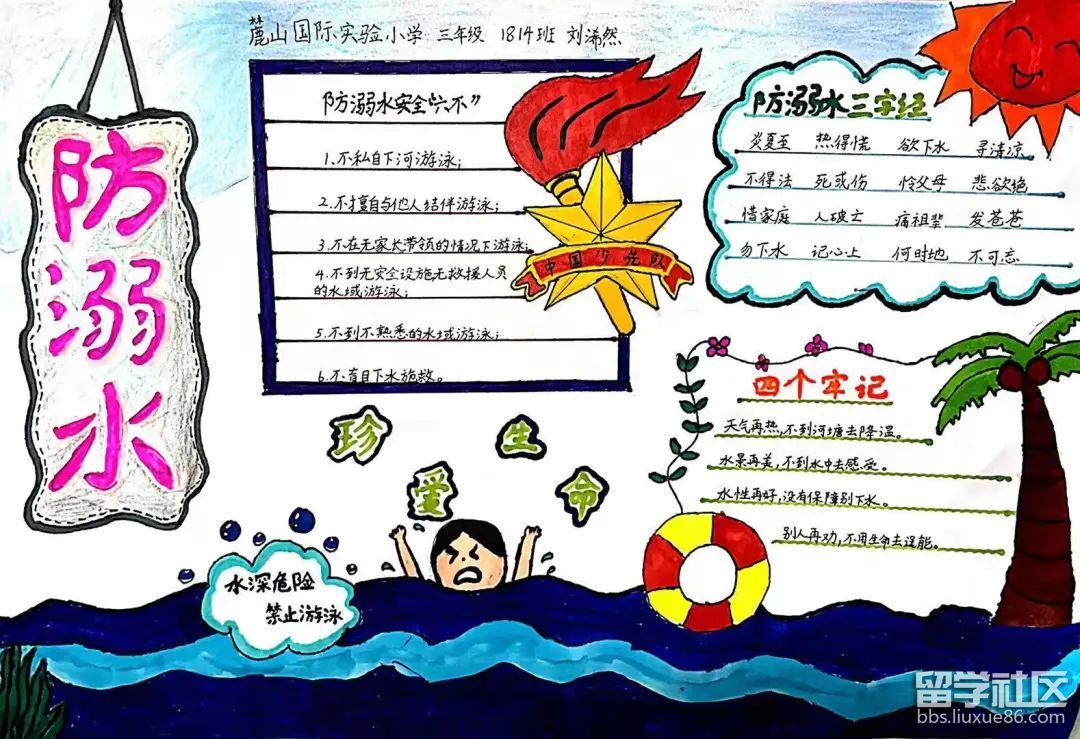 麓山国际实验小学 三年级 1814班 刘浠然
防溺水
防溺水安全“六不”
1.不私自下河游泳;
2.不擅自与他人结伴游泳;
3.不在无家长带领的情况下游泳;
4.不到无安全设施无救援人员
的水域游泳;
5.不到不熟悉的水域游泳;
6.不盲目下水施救。
中国少先队
防溺水三字经
炎夏至 热得慌 欲下水 寻清凉
不得法 死或伤 怜父母 悲欲绝
惜家庭 人破亡 痛祖辈 发苍苍
勿下水 记心上 何时地 不可忘
四个牢记
天气再热,不到河塘去降温。
水景再美,不到水中去感受。
水性再好,没有保障别下水。
别人再劝,不用生命去逞能。
珍爱生命
水深危险
禁止游泳
留学社区
bbs.liuxue86.com